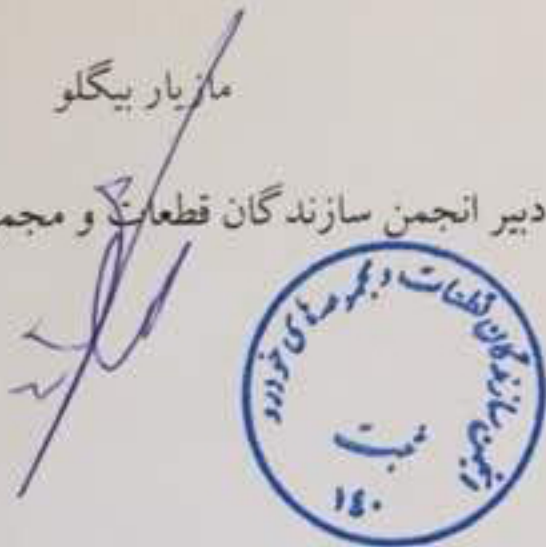 مازیار بیگلو
دبیر انجمن سازندگان قطعات و مجم
انجمن سازندگان قطعات و مجموعه های خودرو
ثبت
۱۴۰